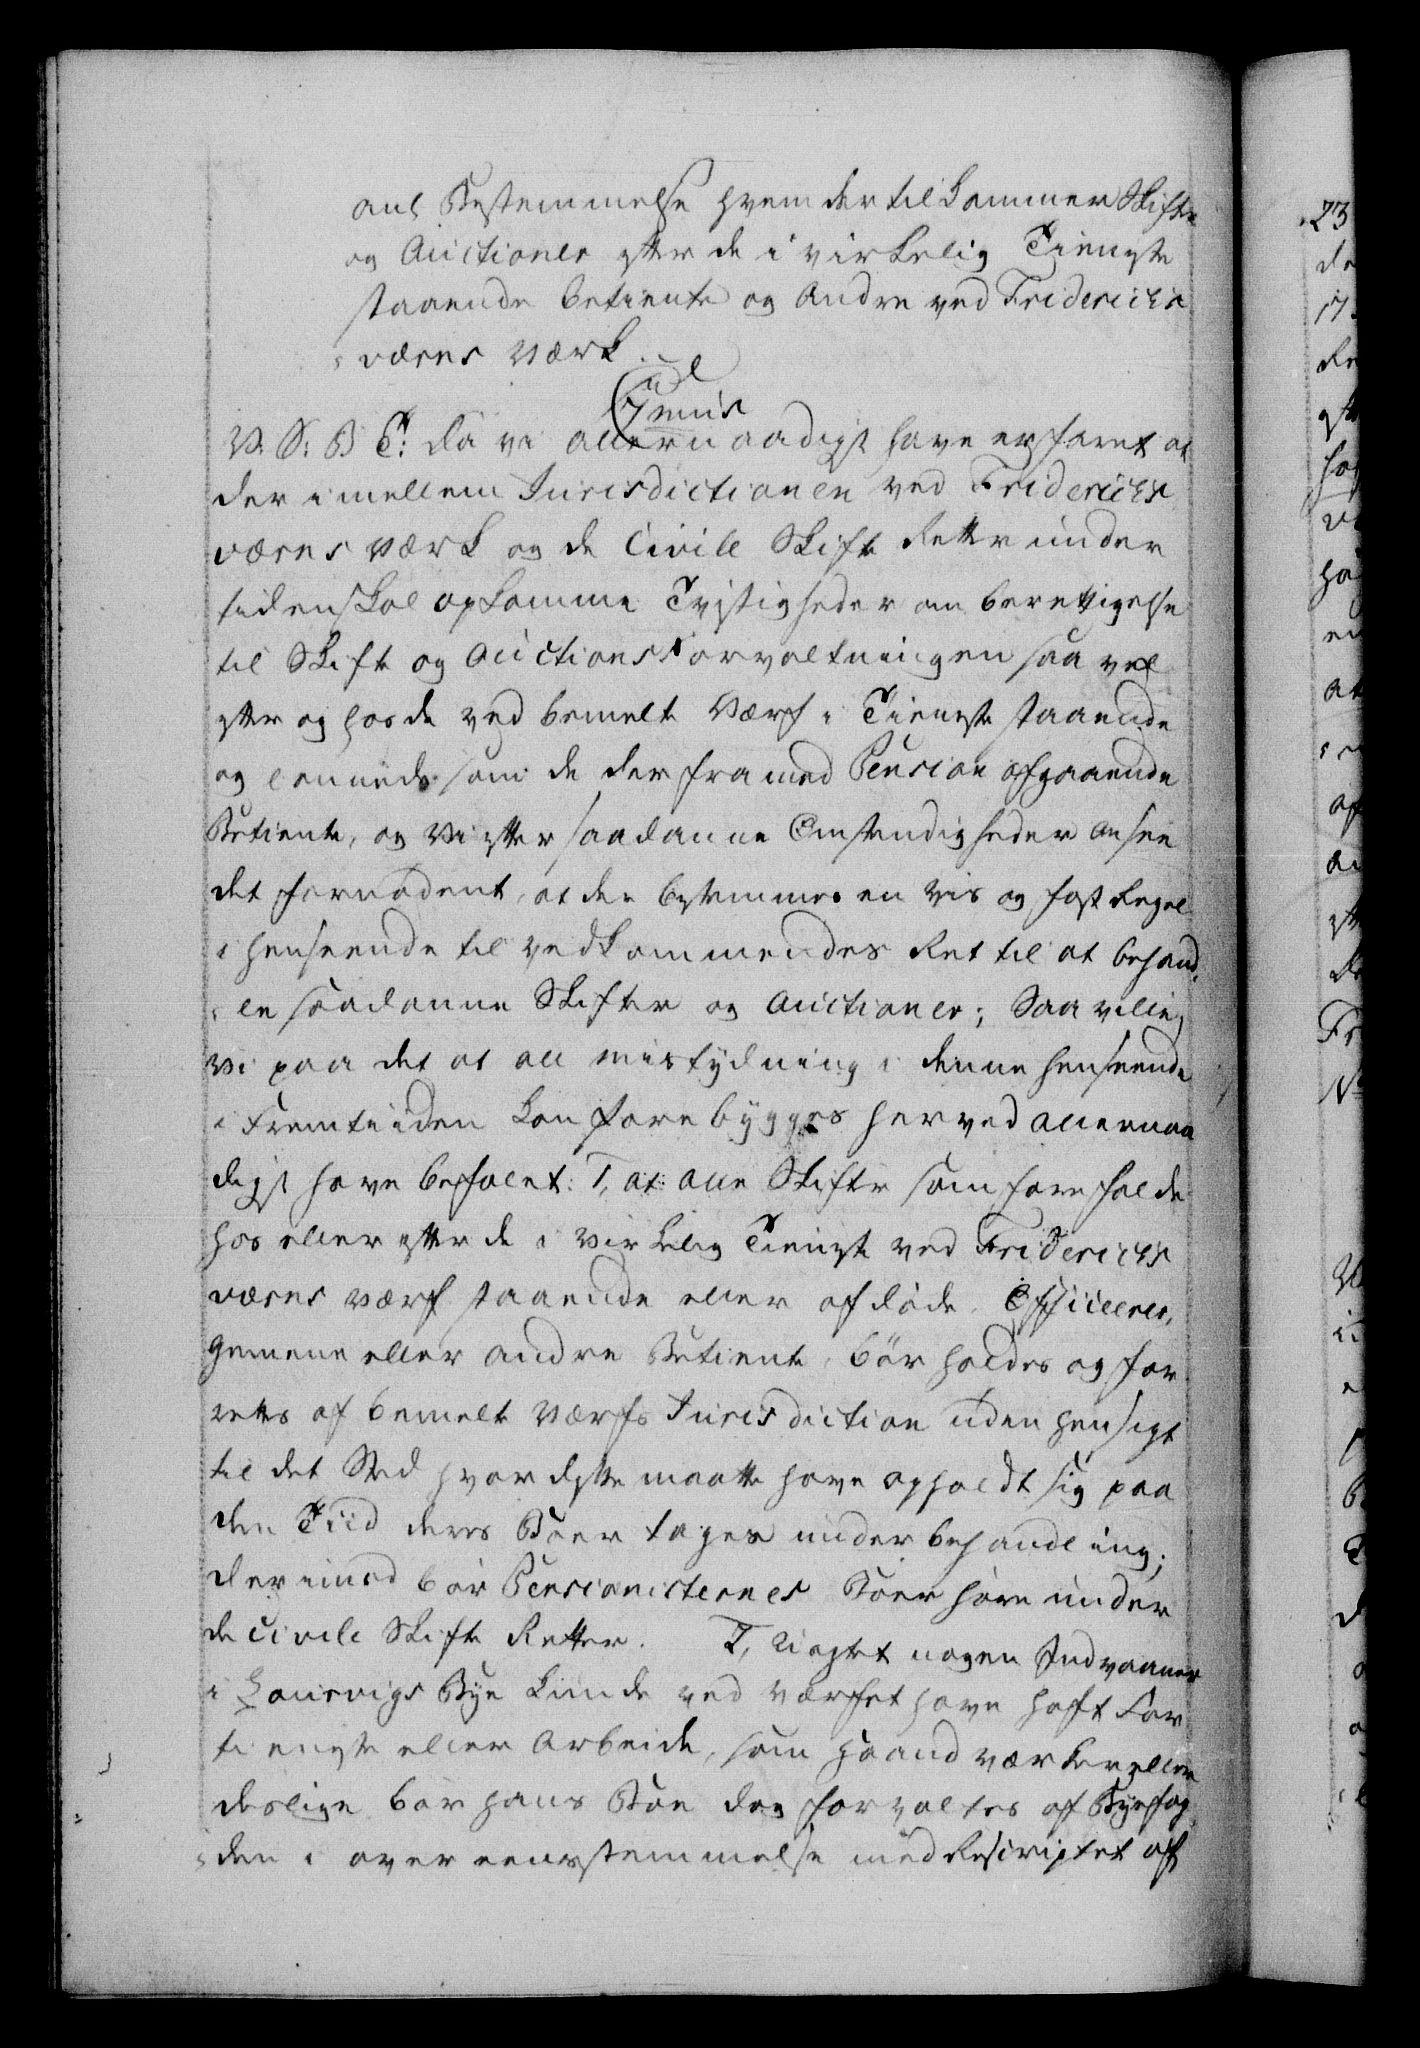 anl Bestemmelse hvem der tilkommer Skifte
og Auctioner efter de i virkelig Tieneste
staaende betiente og andre ved Friderichs
værns Værk.
V. S. B T: Da vi allernaadigst have erfaret at
der imellem Jurisdictionen ved Friderichs
værns Værk og de Civile Skifte Retter under
tiden skal opkomme Tvistigheder om berettigelse
til Skifte og Auctions Forvaltningen saa vel
efter og hos de ved bemelte Værf i Tieneste staaende
og lønnede som de derfra med Pension afgaaende
Betiente, og Vi efter saadanne Omstendigheder ansee
det fornødent, at der bestemmes en vis og fast Regel
i henseende til vedkommendes Ret til at behand¬
le saadanne Skifter og Auctioner; Saa ville
Vi paa det at all mistydning i denne henseende
i Fremtiiden kan forebygges herved allernaa
digst have befalet: 1, at alle Skifter som forefalde
hos eller efter de i Virkelig Tieneste ved Friderichs
værns værf staaende eller afdøde Officerer,
Gemene eller andre Betiente, bør holdes og for
rettes af bemelte Værfs Jurisdiction uden hensigt
til det Sted hvor dette maatte have opholdt sig paa
den Tiid deres Boer tages under behandling;
derimod bør Pensionisternes Boer høre under
de civile Skifte Retter. 2, Uagtet nogen Indvaaner
i Laurvigs Bye kunde ved værfet have hafft For
tieneste eller Arbeide, som Haandværker eller
deslige bør hans Boe dog forvaltes af Byefog¬
den i overeensstemmelse med Rescriptet af